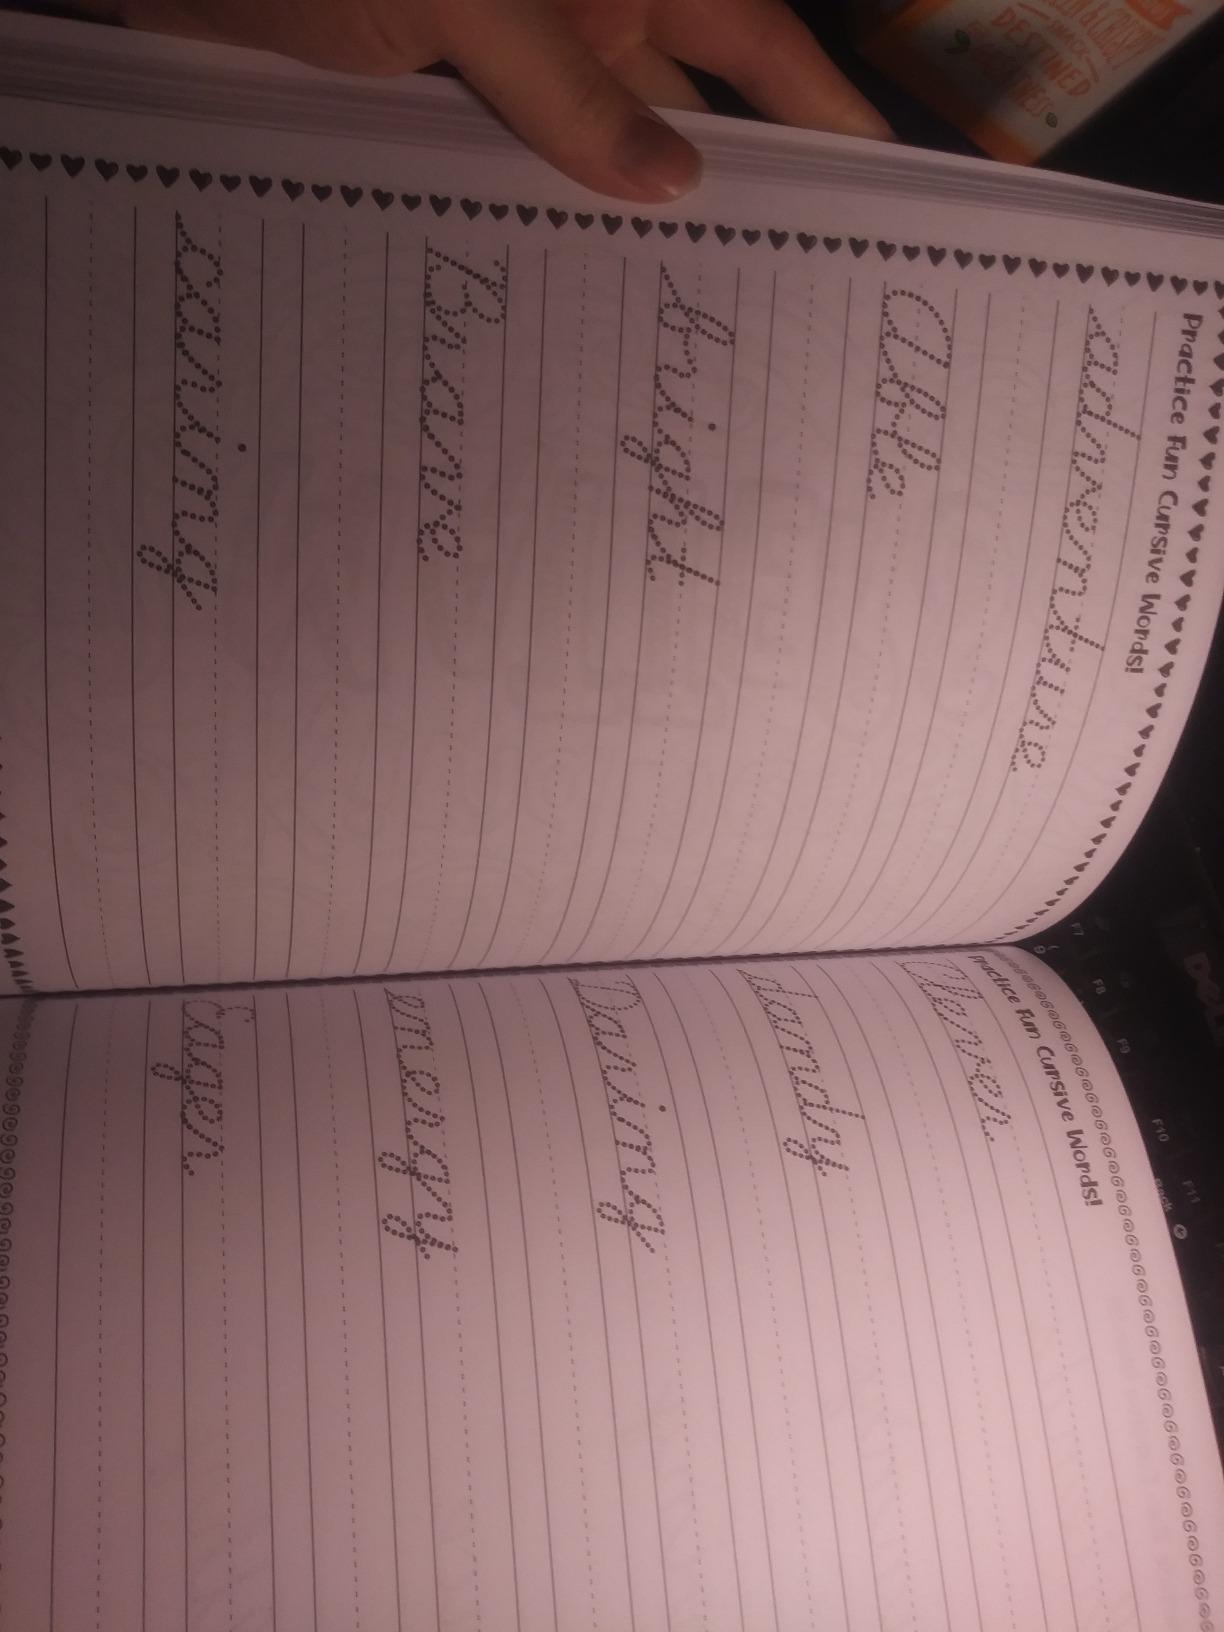 Practice Fun Cursive Words!
adventure
Able
bright
Brave
caring
Practice Fun Cursive Words!
Clever
dandy
Daring
energy
Eager
DESTINED
F7
F8
F9
F10
F11
9